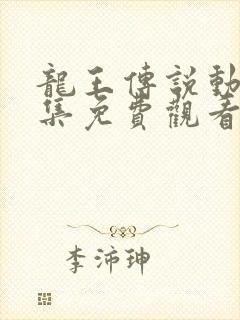 龍王傳說動
集免費觀看
李沛珅